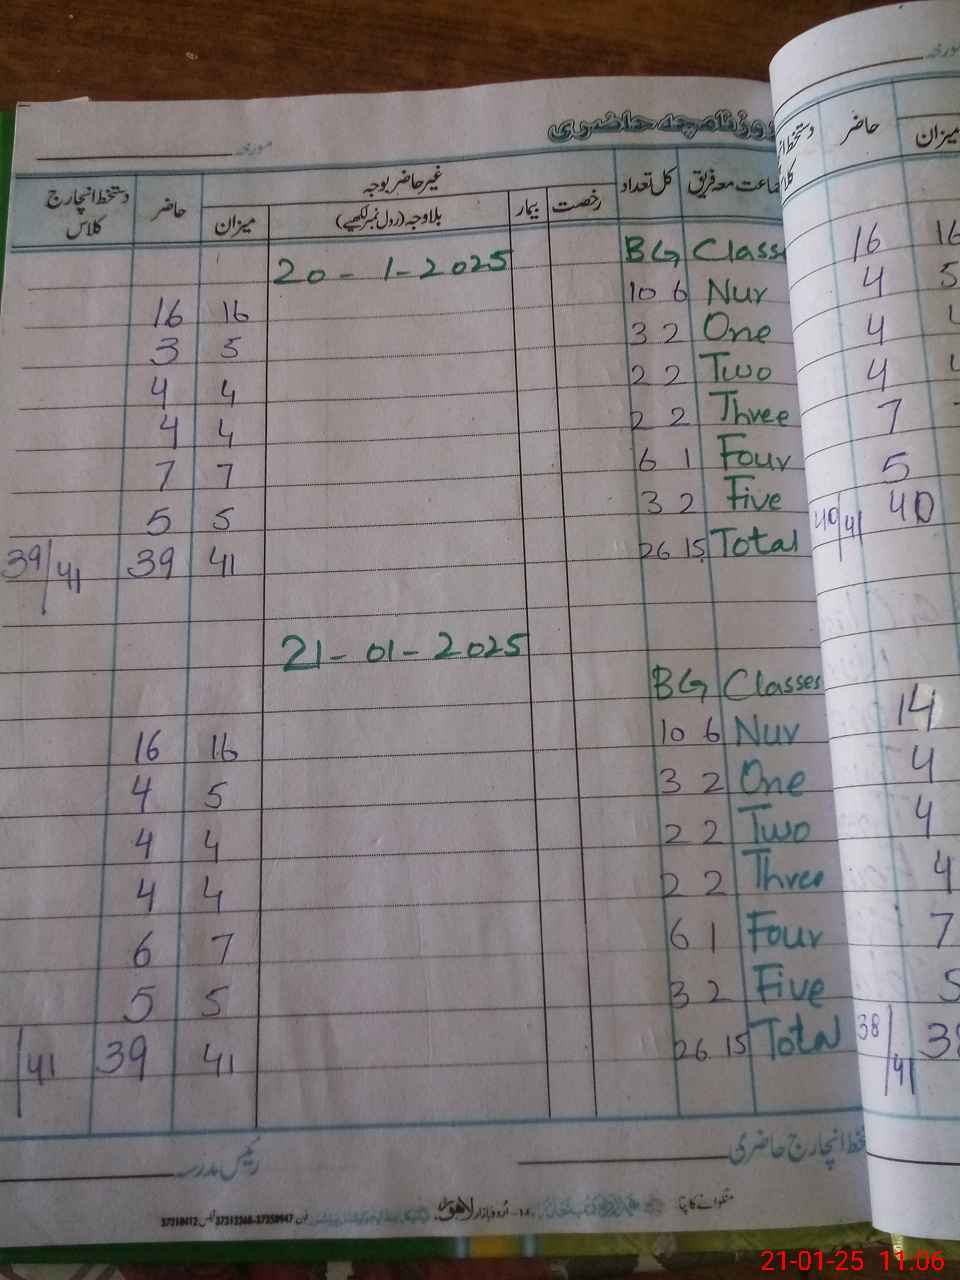 روزنامچہ حاضری
مورخہ
جماعت معہ فریق کل تعداد غیر حاضر بوجہ حاضر دستخط انچارج کلاس
رخصت بیمار بلاوجہ (رول نمبر لکھیے) میزان
20-1-2025 BG Classes
16 16 10 6 Nur
3 5 3 2 One
4 4 2 2 Two
4 4 2 2 Three
7 7 6 1 Four
5 5 3 2 Five
39/41 39 41 26 15 Total
21-01-2025
BG Classes
16 16 10 6 Nur
4 5 3 2 One
4 4 2 2 Two
4 4 2 2 Three
6 7 6 1 Four
5 5 3 2 Five
/41 39 41 26 15 Total
دستخط انچارج حاضری رئیس مدرسہ
منگوانے کا پتا اردو بازار لاہور
مورخہ
دستخط حاضر میزان
16 16
4 5
4
4
7
5
40/41 40
14
4
4
4
7
5
38/41 38
21-01-25 11:06